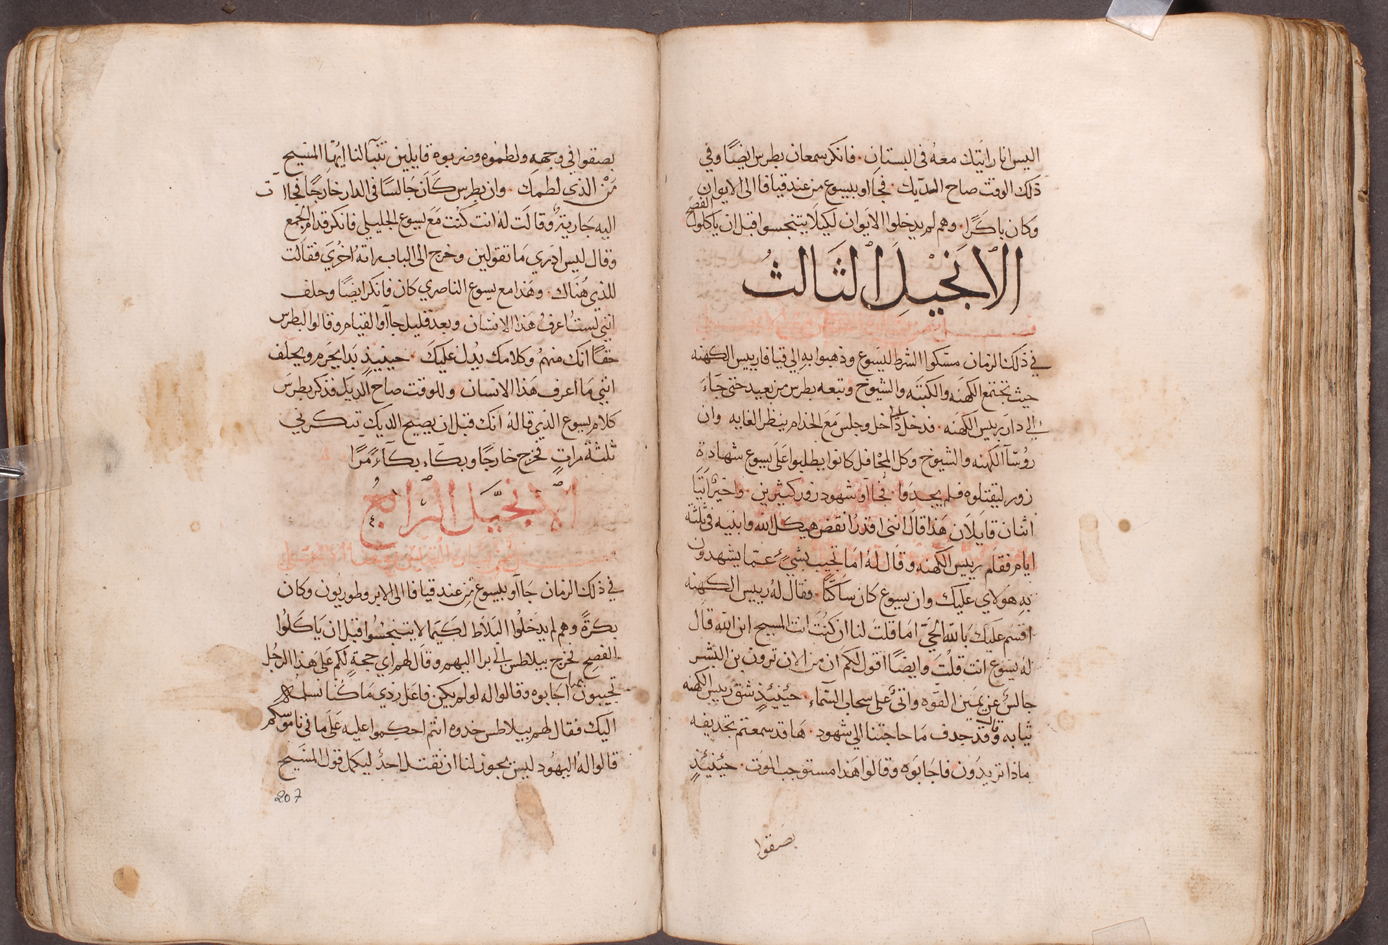 اليس انا رائيتك معه في البستان فانكر سمعان بطرس ايضًا وفي
ذلك الوقت صاح الديك فجاوا بيسوع من عند قيافا الى الايوان
وكان باكرًا وهم لم يدخلوا الايوان لكيلا يتنجسوا قبل ان ياكلوا
الفصح
الانجيل الثالث
في ذلك الزمان مسكوا الشرط ليسوع وذهبوا به الي قيافا رييس الكهنه
حيث تجتمع الكهنه والكتبه والشيوخ وتبعه بطرس من بعيد حتي جاء
الي دار رييس الكهنه فدخل داخل وجلس مع الخدام ينظر الغايه وان
روسآ الكهنه والشيوخ وكل المحافل كانوا يطلبوا على يسوع شهادة
زور ليقتلوه فلم يجدوا فجاآو شهود زور كثيرين واخيرًا اتيا
اثنان قايلان هذا قال انني اقدر انقض هيكل الله وابنيه في ثلثة
ايام فقام رييس الكهنه وقال له اما تجيب بشيء عما يشهدون
به هولاي عليك وان يسوع كان ساكتًا فقال له رييس الكهنه
اقسم عليك بالله الحيّ اما قلت لنا ان كنت انت المسيح ابن الله قال
له يسوع انت قلت وايضًا اقول لكم ان من الان ترون بن البشر
جالس عن يمين القوه واتي على سحاب السمآء حينيذٍ شق رييس الكهنه
ثيابه وقال قد جدف ما حاجتنا الي شهود ها قد سمعتم تجديفه
ماذا تريدون فاجابوه وقالوا هذا مستوجب الموت حينيذٍ
بصقوا
بصقوا في وجهه ولطموه وضربوه قايلين تنبآ لنا ايها المسيح
مَن الذي لطمك وان بطرس كان جالسًا في الدار خارجًا فجاات
اليه جاريةٌ وقالت له انت كنت مع يسوع الجليلي فانكر قدام الجمع
وقال ليس ادري ما تقولين وخرج الى الباب راته اخري فقالت
للذي هناك وهذا مع يسوع الناصري كان فانكر ايضًا وحلف
انني لست اعرف هذا الانسان وبعد قليل جاآوا القيام وقالوا لبطرس
حقًا انك منهم وكلامك يدل عليك حينيذٍ بدا يحرم ويحلف
انني ما اعرف هذا الانسان وللوقت صاح الديك فذكر بطرس
كلام يسوع الذي قاله انك قبل ان يصيح الديك تنكرني
ثلثة مراتٍ فخرج خارجًا وبكاء بكآء مرًا
الانجيل الرابع
في ذلك الزمان جاآو بيسوع من عند قيافا الى الابروطوريون وكان
بكرةً وهم لم يدخلوا البلاط لكيما لا يتنجسوا قبل ان ياكلوا
الفصح فخرج بيلاطس الي برا اليهم وقال لهم اي حجةٍ لكم على هذا الرجل
تجيبون فاجابوه وقالوا له لو لم يكن فاعل ردي ما كنا نسلمه
اليك فقال لهم بيلاطس خدوه انتم احكموا عليه على ما في ناموسكم
قالوا له اليهود ليس يجوز لنا ان نقتل احدٌ ليكمل قول المسيح
207